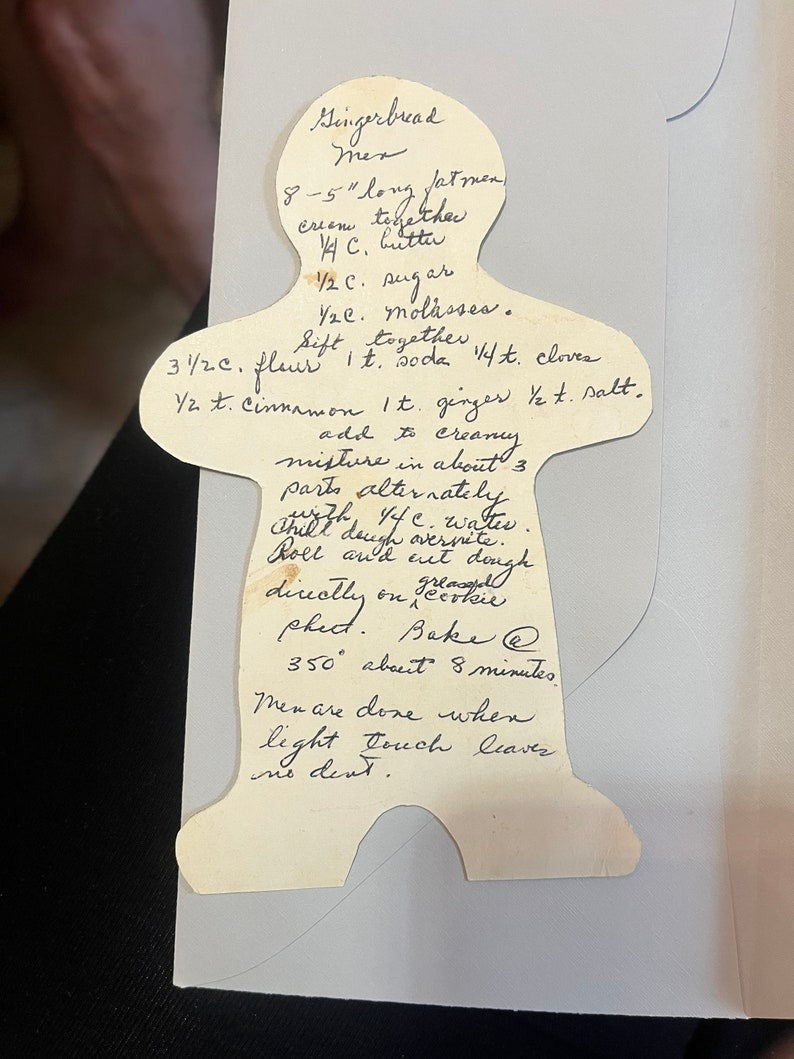 Gingerbread
Men
8 - 5" long fat men
cream together
1/4 C. butter
1/2 C. sugar
1/2 C. molasses.
Sift together
3 1/2 c. flour 1 t. soda 1/4 t. cloves
1/2 t. cinnamon 1 t. ginger 1/2 t. salt.
add to creamy
mixture in about 3
parts alternately
with 1/4 C. water.
Chill dough overnite.
Roll and cut dough
directly on greased cookie
sheet. Bake @
350° about 8 minutes.
Men are done when
light touch leaves
no dent.